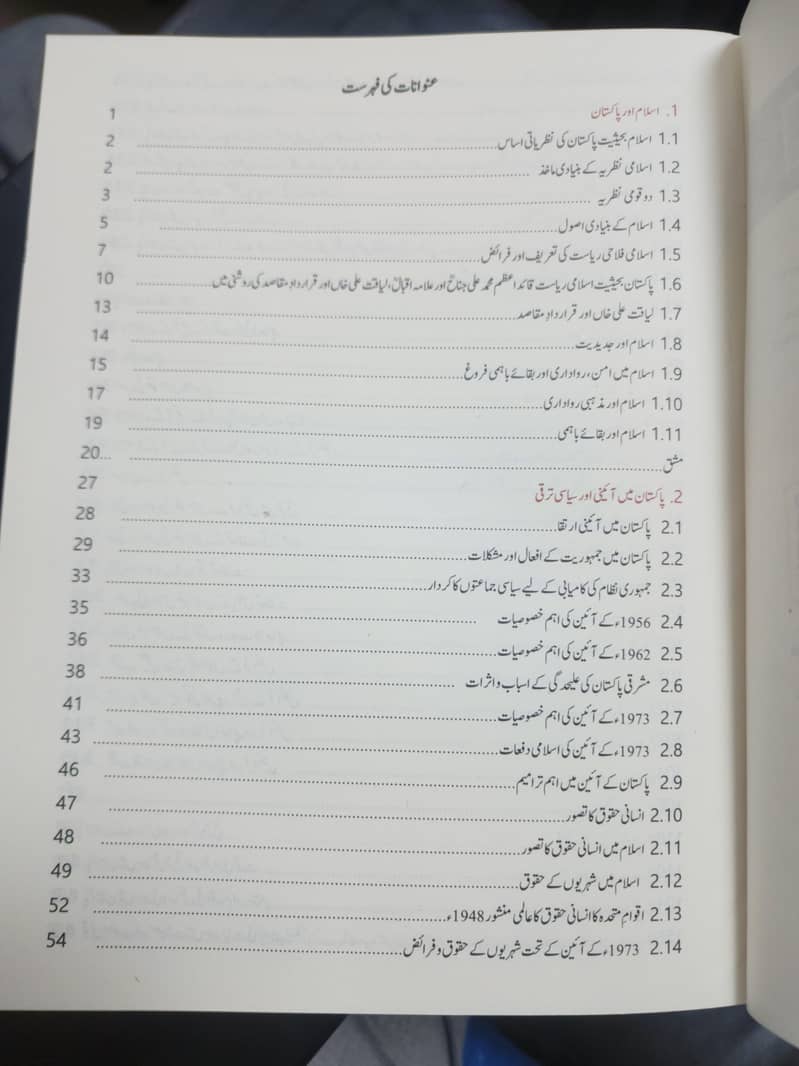 عنوانات کی فہرست
1. اسلام اور پاکستان 1
1.1 اسلام بحیثیت پاکستان کی نظریاتی اساس 2
1.2 اسلامی نظریہ کے بنیادی ماخذ 2
1.3 دو قومی نظریہ 3
1.4 اسلام کے بنیادی اصول 5
1.5 اسلامی فلاحی ریاست کی تعریف اور فرائض 7
1.6 پاکستان بحیثیت اسلامی ریاست قائد اعظم محمد علی جناحؒ اور علامہ اقبالؒ، لیاقت علی خاں اور قراردادِ مقاصد کی روشنی میں 10
1.7 لیاقت علی خاں اور قراردادِ مقاصد 13
1.8 اسلام اور جدیدیت 14
1.9 اسلام میں امن، رواداری اور بقائے باہمی فروغ 15
1.10 اسلام اور مذہبی رواداری 17
1.11 اسلام اور بقائے باہمی 19
مشق 20
2. پاکستان میں آئینی اور سیاسی ترقی 27
2.1 پاکستان میں آئینی ارتقا 28
2.2 پاکستان میں جمہوریت کے افعال اور مشکلات 29
2.3 جمہوری نظام کی کامیابی کے لیے سیاسی جماعتوں کا کردار 33
2.4 1956ء کے آئین کی اہم خصوصیات 35
2.5 1962ء کے آئین کی اہم خصوصیات 36
2.6 مشرقی پاکستان کی علیحدگی کے اسباب و اثرات 38
2.7 1973ء کے آئین کی اہم خصوصیات 41
2.8 1973ء کے آئین کی اسلامی دفعات 43
2.9 پاکستان کے آئین میں اہم ترامیم 46
2.10 انسانی حقوق کا تصور 47
2.11 اسلام میں انسانی حقوق کا تصور 48
2.12 اسلام میں شہریوں کے حقوق 49
2.13 اقوامِ متحدہ کا انسانی حقوق کا عالمی منشور 1948ء 52
2.14 1973ء کے آئین کے تحت شہریوں کے حقوق و فرائض 54